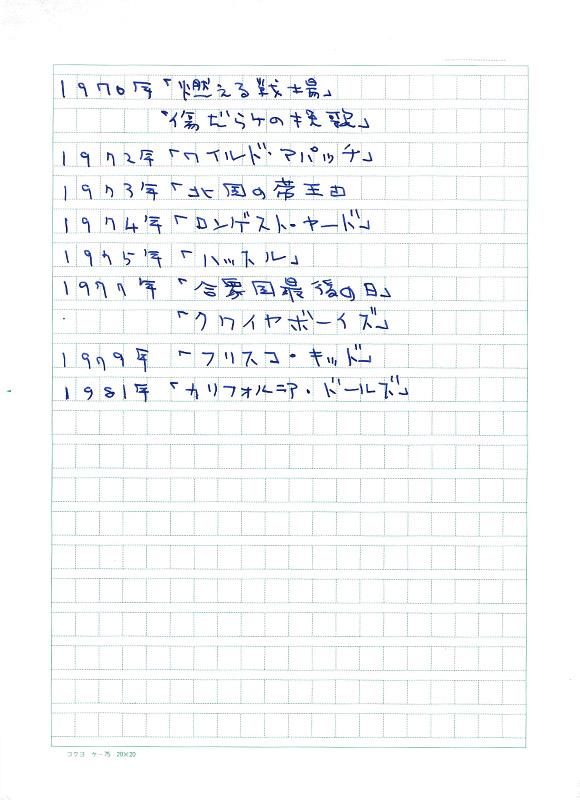 1970年「燃える戦場」
「傷だらけの挽歌」
1972年「ワイルド・アパッチ」
1973年「北国の帝王」
1974年「ロンゲスト・ヤード」
1975年「ハッスル」
1977年「合衆国最後の日」
「クワイヤボーイズ」
1979年「フリスコ・キッド」
1981年「カリフォルニア・ドールズ」
コクヨ ケー75 20×20